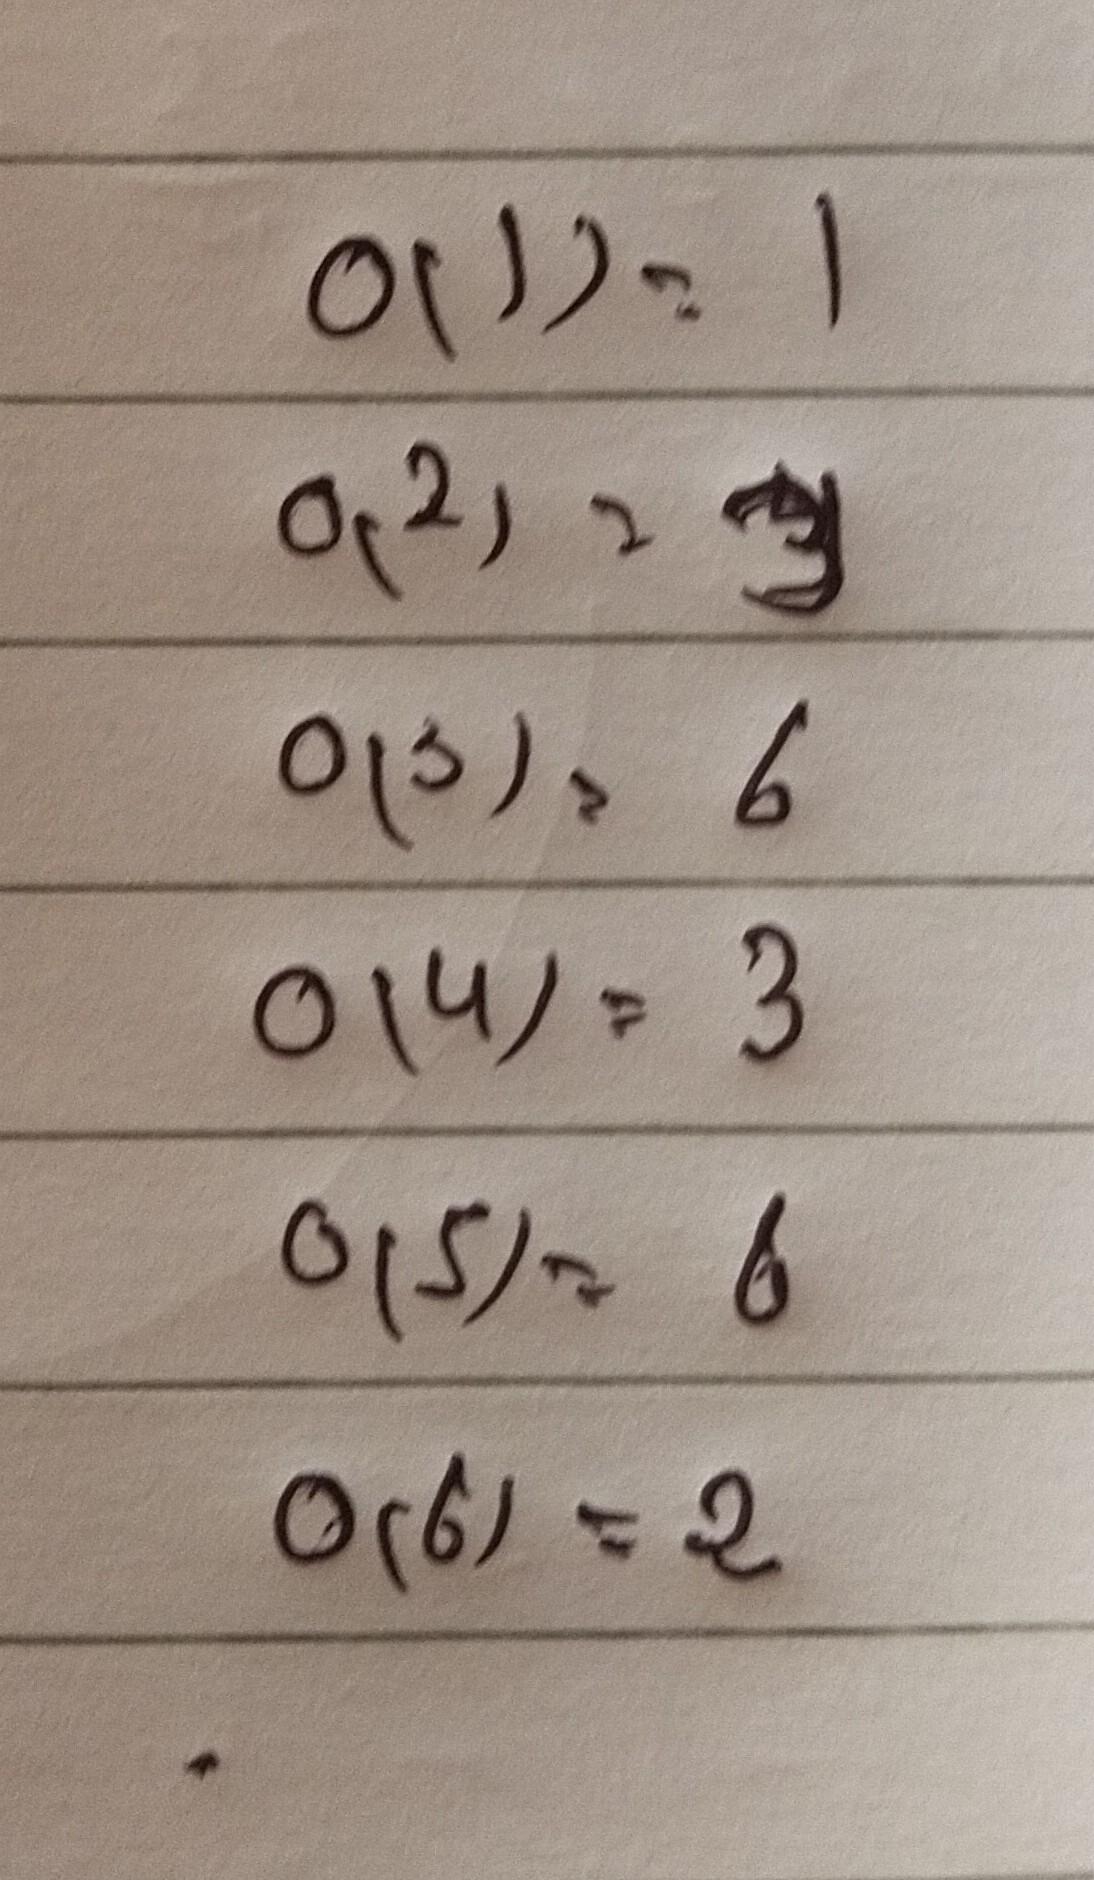 O(1) = 1
O(2) = 3
O(3) = 6
O(4) = 3
O(5) = 6
O(6) = 2